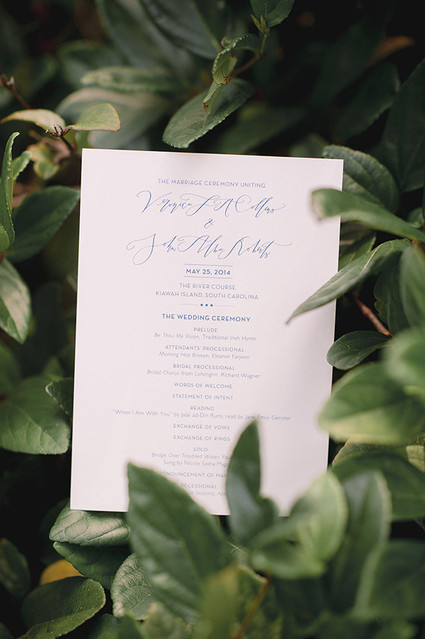 THE MARRIAGE CEREMONY UNITING
Veronica Collins
&
John Allen Roberts
MAY 25, 2014
THE RIVER COURSE
KIAWAH ISLAND, SOUTH CAROLINA
THE WEDDING CEREMONY
PRELUDE
Be Thou My Vision, Traditional Irish Hymn
ATTENDANTS' PROCESSIONAL
Morning Has Broken, Eleanor Farjeon
BRIDAL PROCESSIONAL
Bridal Chorus from Lohengrin, Richard Wagner
WORDS OF WELCOME
STATEMENT OF INTENT
READING
"When I Am With You" by Jalal ad-Din Rumi; read by
EXCHANGE OF VOWS
EXCHANGE OF RINGS
SOLO
Bridge Over Troubled Water,
Sung by Felicia
ANNOUNCEMENT OF